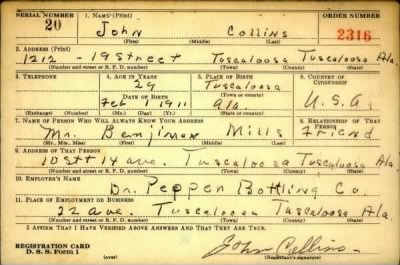 SERIAL NUMBER 1. NAME (Print) ORDER NUMBER
20 John Collins 2316
(First) (Middle) (Last)
2. ADDRESS (Print)
1212 - 19 Street Tuscaloosa Tuscaloosa Ala.
(Number and street or R. F. D. number) (Town) (County) (State)
3. TELEPHONE 4. AGE IN YEARS 5. PLACE OF BIRTH 6. COUNTRY OF CITIZENSHIP
29 Tuscaloosa
DATE OF BIRTH (Town or county)
Feb 1 1911 Ala. U.S.A.
(Exchange) (Number) (Mo.) (Day) (Yr.) (State or country)
7. NAME OF PERSON WHO WILL ALWAYS KNOW YOUR ADDRESS 8. RELATIONSHIP OF THAT PERSON
Mr. Mills Friend
(Mr., Mrs., Miss) (First) (Middle) (Last)
9. ADDRESS OF THAT PERSON
14 ave. Tuscaloosa Tuscaloosa Ala.
(Number and street or R. F. D. number) (Town) (County) (State)
10. EMPLOYER'S NAME
Dr. Pepper Bottling Co.
11. PLACE OF EMPLOYMENT OR BUSINESS
22 ave. Tuscaloosa Tuscaloosa Ala.
(Number and street or R. F. D. number) (Town) (County) (State)
I AFFIRM THAT I HAVE VERIFIED ABOVE ANSWERS AND THAT THEY ARE TRUE.
REGISTRATION CARD
D. S. S. Form 1 (over) John Collins
(Registrant's signature)